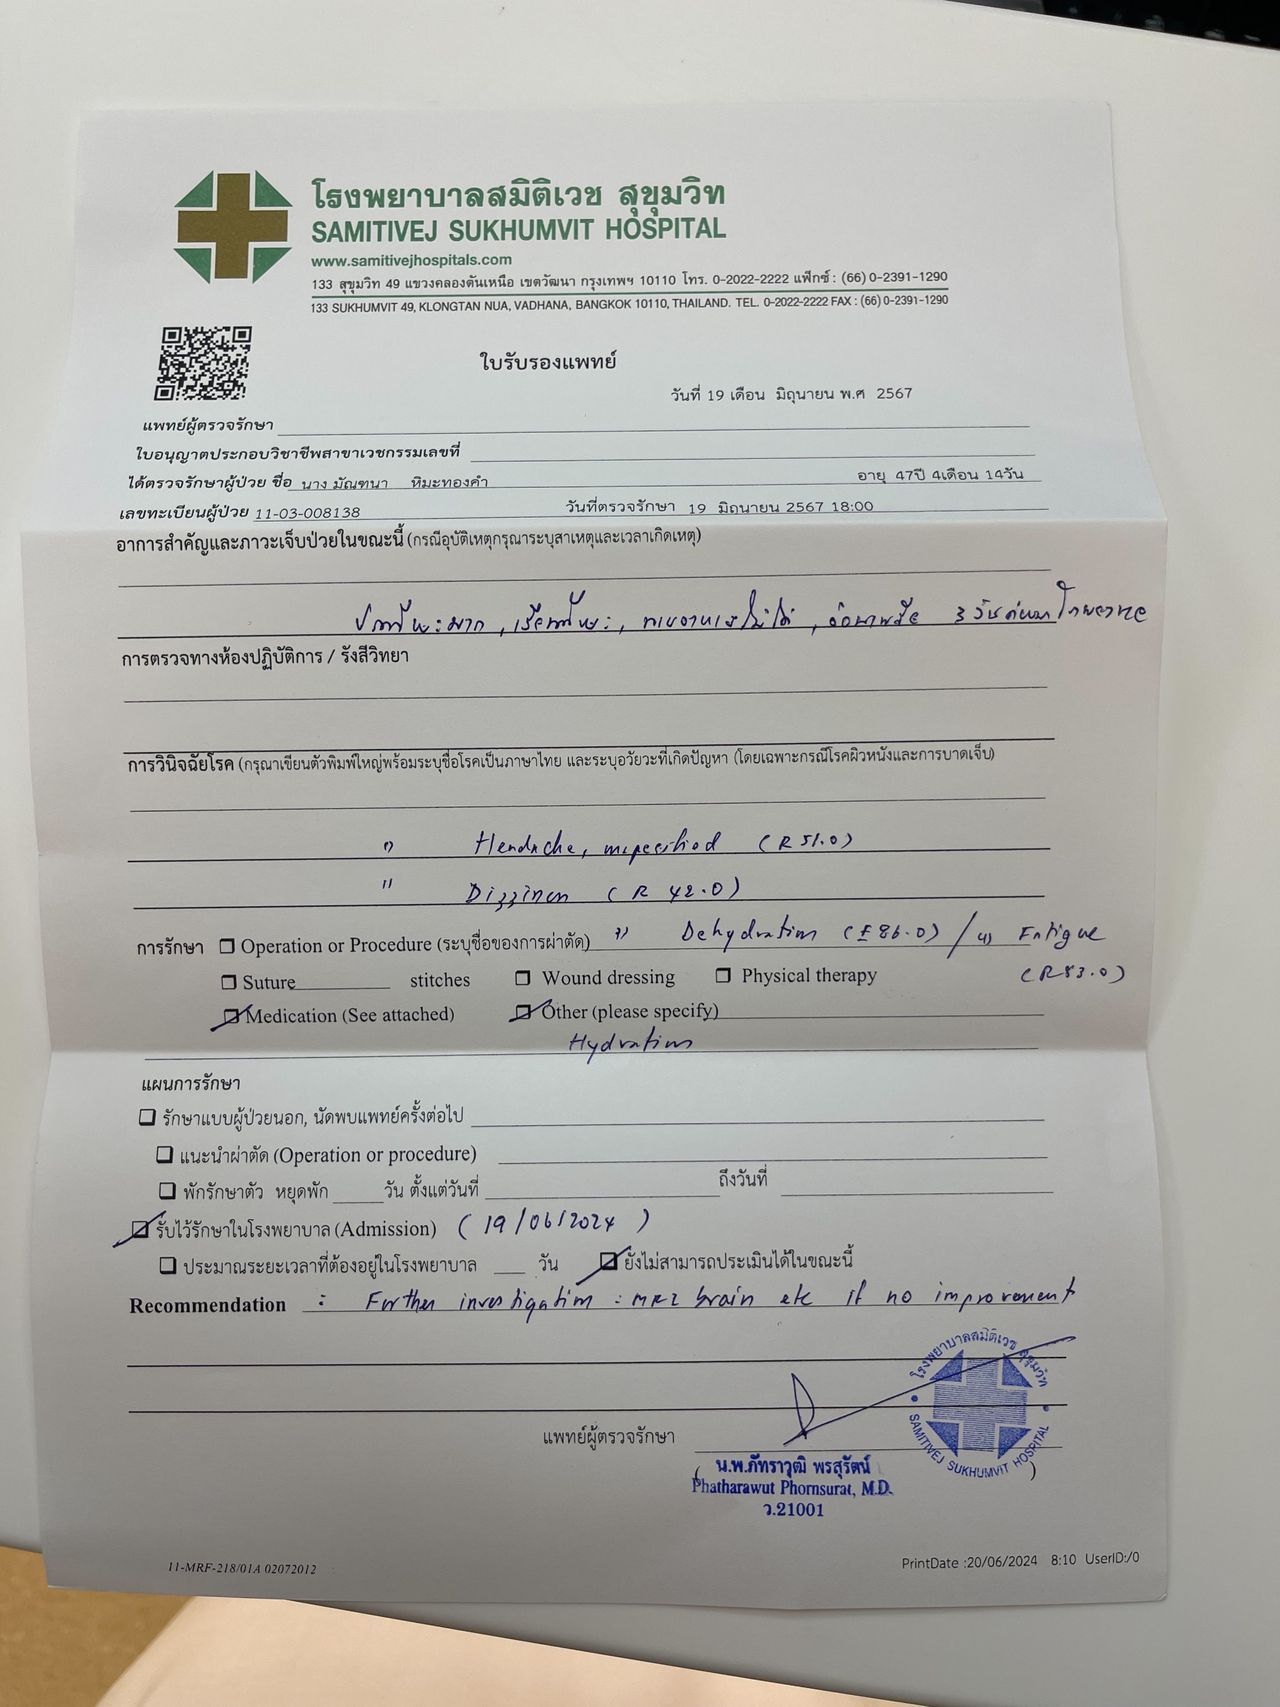 โรงพยาบาลสมิติเวช สุขุมวิท
SAMITIVEJ SUKHUMVIT HOSPITAL
www.samitivejhospitals.com
133 สุขุมวิท 49 แขวงคลองตันเหนือ เขตวัฒนา กรุงเทพฯ 10110 โทร. 0-2022-2222 แฟ็กซ์ : (66) 0-2391-1290
133 SUKHUMVIT 49, KLONGTAN NUA, VADHANA, BANGKOK 10110, THAILAND. TEL. 0-2022-2222 FAX : (66) 0-2391-1290
ใบรับรองแพทย์
วันที่ 19 เดือน มิถุนายน พ.ศ 2567
แพทย์ผู้ตรวจรักษา
ใบอนุญาตประกอบวิชาชีพสาขาเวชกรรมเลขที่
ได้ตรวจรักษาผู้ป่วย ชื่อ นาง มัณฑนา หิมะทองคำ อายุ 47ปี 4เดือน 14วัน
เลขทะเบียนผู้ป่วย 11-03-008138 วันที่ตรวจรักษา 19 มิถุนายน 2567 18:00
อาการสำคัญและภาวะเจ็บป่วยในขณะนี้ (กรณีอุบัติเหตุกรุณาระบุสาเหตุและเวลาเกิดเหตุ)
ปวดศีรษะมาก, เวียนศีรษะ, ไม่ได้, 3 วันก่อนมาโรงพยาบาล
การตรวจทางห้องปฏิบัติการ / รังสีวิทยา
การวินิจฉัยโรค (กรุณาเขียนตัวพิมพ์ใหญ่พร้อมระบุชื่อโรคเป็นภาษาไทย และระบุอวัยวะที่เกิดปัญหา (โดยเฉพาะกรณีโรคผิวหนังและการบาดเจ็บ)
1) Headache, unspecified (R51.0)
2) Dizziness (R42.0)
การรักษา Operation or Procedure (ระบุชื่อของการผ่าตัด) 3) Dehydration (E86.0) / 4) Fatigue
(R53.0)
Suture stitches Wound dressing Physical therapy
Medication (See attached) Other (please specify)
Hydration
แผนการรักษา
รักษาแบบผู้ป่วยนอก, นัดพบแพทย์ครั้งต่อไป
แนะนำผ่าตัด (Operation or procedure)
พักรักษาตัว หยุดพัก วัน ตั้งแต่วันที่ ถึงวันที่
รับไว้รักษาในโรงพยาบาล (Admission) (19/06/2024)
ประมาณระยะเวลาที่ต้องอยู่ในโรงพยาบาล วัน ยังไม่สามารถประเมินได้ในขณะนี้
Recommendation : Further investigation : MRI brain etc if no improvement
โรงพยาบาลสมิติเวช สุขุมวิท
SAMITIVEJ SUKHUMVIT HOSPITAL
แพทย์ผู้ตรวจรักษา
( )
น.พ.ภัทราวุฒิ พรสุรัตน์
Phatharawut Phornsurat, M.D.
ว.21001
11-MRF-218/01A 02072012
PrintDate :20/06/2024 8:10 UserID:/0